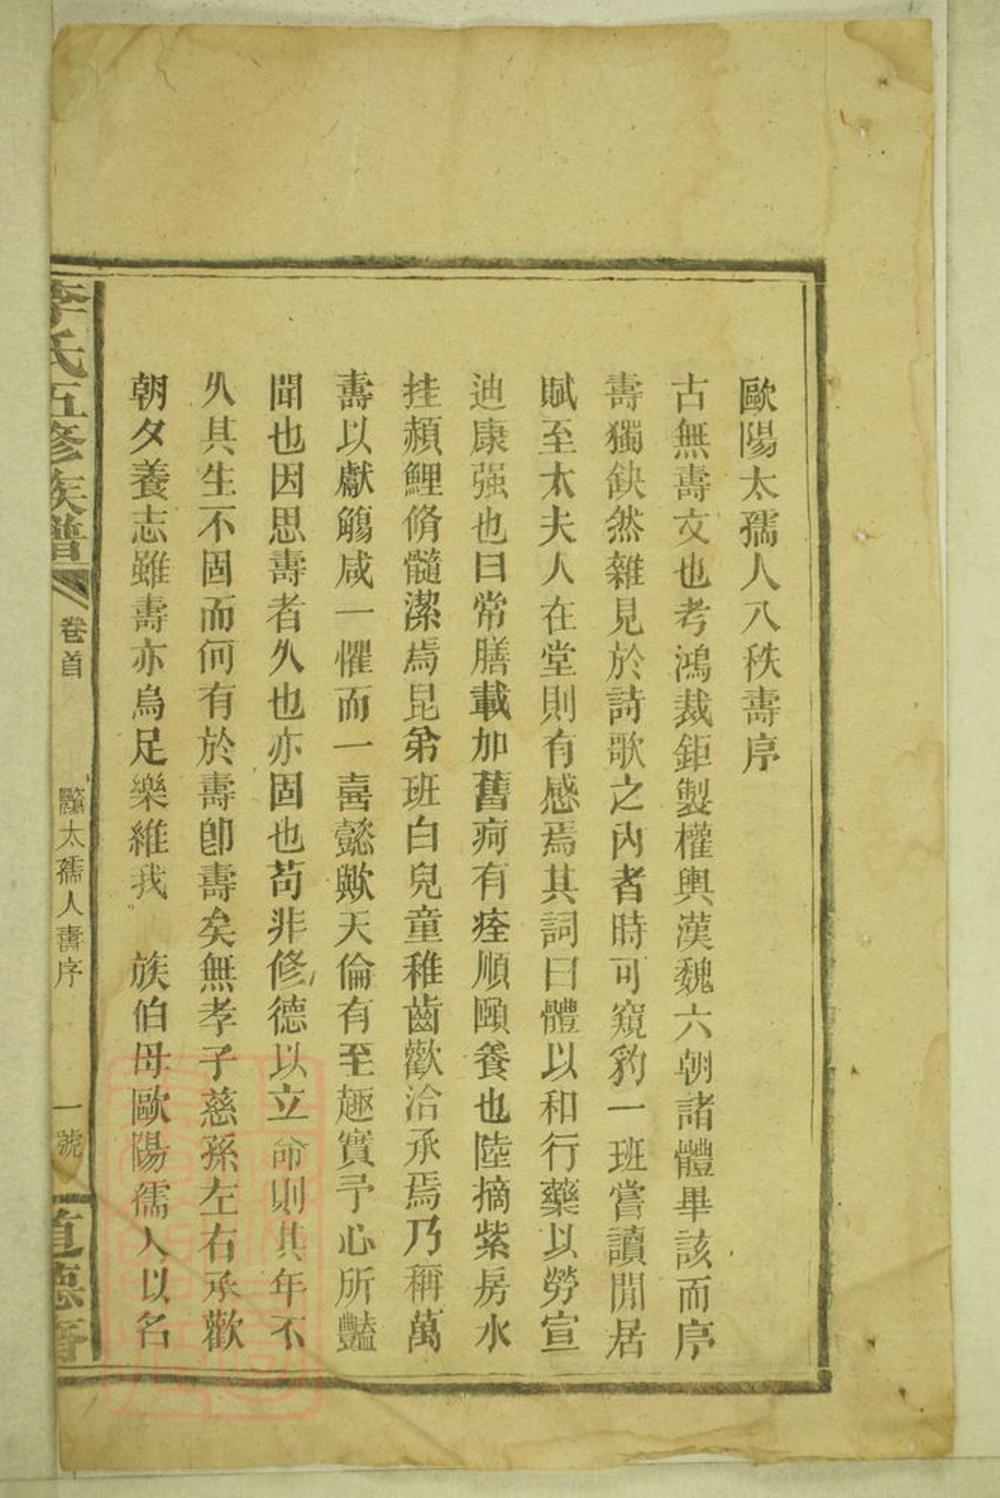 歐陽太孺人八秩壽序
古無壽文也考鴻裁鉅製權輿漢魏六朝諸體畢該而序
壽獨缺然雜見於詩歌之內者時可窺豹一班嘗讀閒居
賦至太夫人在堂則有感焉其詞曰體以和行藥以勞宣
迪康强也曰常膳載加舊疴有痊順頤養也陸摘紫房水
挂頳鯉脩髓潔焉昆弟班白兒童稚齒歡洽承焉乃稱萬
壽以獻觴咸一懼而一喜懿歟天倫有至趣實予心所豔
聞也因思壽者久也亦固也苟非修德以立命則其年不
久其生不固而何有於壽卽壽矣無孝子慈孫左右承歡
朝夕養志雖壽亦烏足樂維我　族伯母歐陽孺人以名
李氏五修族譜　卷首　太孺人壽序　一號　道德